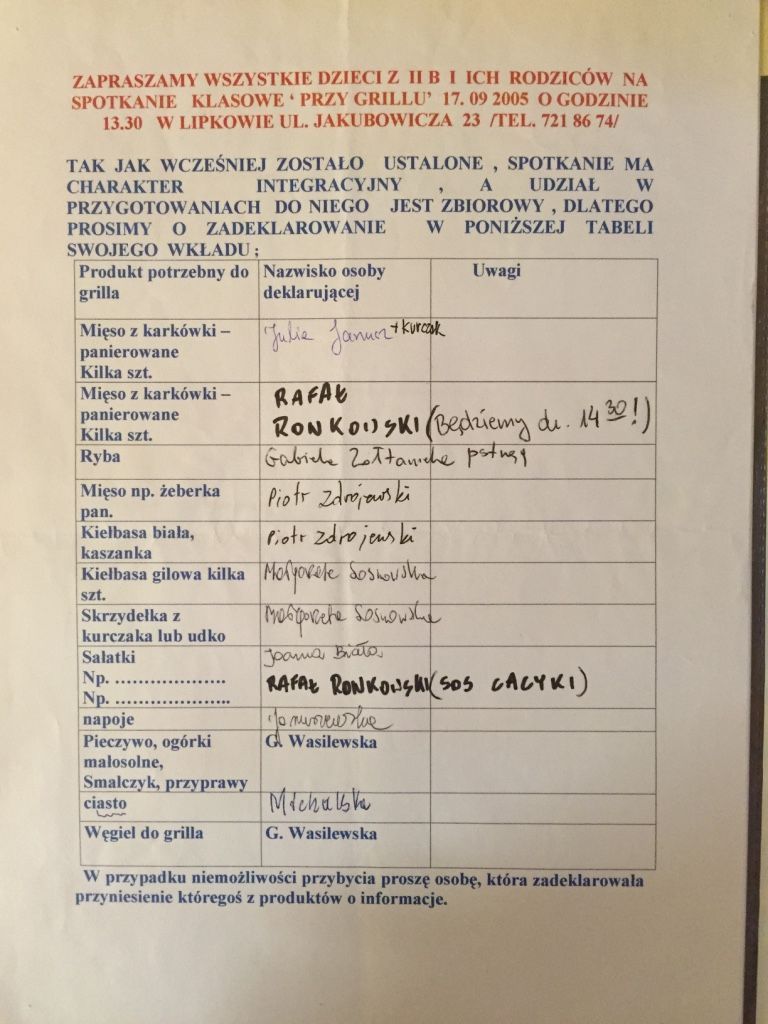 ZAPRASZAMY WSZYSTKIE DZIECI Z II B I ICH RODZICÓW NA
SPOTKANIE KLASOWE ‘ PRZY GRILLU’ 17. 09 2005 O GODZINIE
13.30 W LIPKOWIE UL. JAKUBOWICZA 23 /TEL. 721 86 74/
TAK JAK WCZEŚNIEJ ZOSTAŁO USTALONE , SPOTKANIE MA
CHARAKTER INTEGRACYJNY , A UDZIAŁ W
PRZYGOTOWANIACH DO NIEGO JEST ZBIOROWY , DLATEGO
PROSIMY O ZADEKLAROWANIE W PONIŻSZEJ TABELI
SWOJEGO WKŁADU ;
Produkt potrzebny do
grilla
Nazwisko osoby
deklarującej
Uwagi
Mięso z karkówki –
panierowane
Kilka szt.
Julia Janusz + kurczak
Mięso z karkówki –
panierowane
Kilka szt.
RAFAŁ
RONKOWSKI (Będziemy do. 14 30!)
Ryba
Gabriela pstrągi
Mięso np. żeberka
pan.
Piotr Zdrojewski
Kiełbasa biała,
kaszanka
Piotr Zdrojewski
Kiełbasa gilowa kilka
szt.
Małgorzata Sosnowska
Skrzydełka z
kurczaka lub udko
Małgorzata Sosnowska
Sałatki
Np. ………………..
Np. ………………...
Joanna Biała
RAFAŁ RONKOWSKI (SOS CACYKI)
napoje
Januszewska
Pieczywo, ogórki
małosolne,
Smalczyk, przyprawy
G. Wasilewska
ciasto
Michalska
Węgiel do grilla
G. Wasilewska
W przypadku niemożliwości przybycia proszę osobę, która zadeklarowała
przyniesienie któregoś z produktów o informacje.